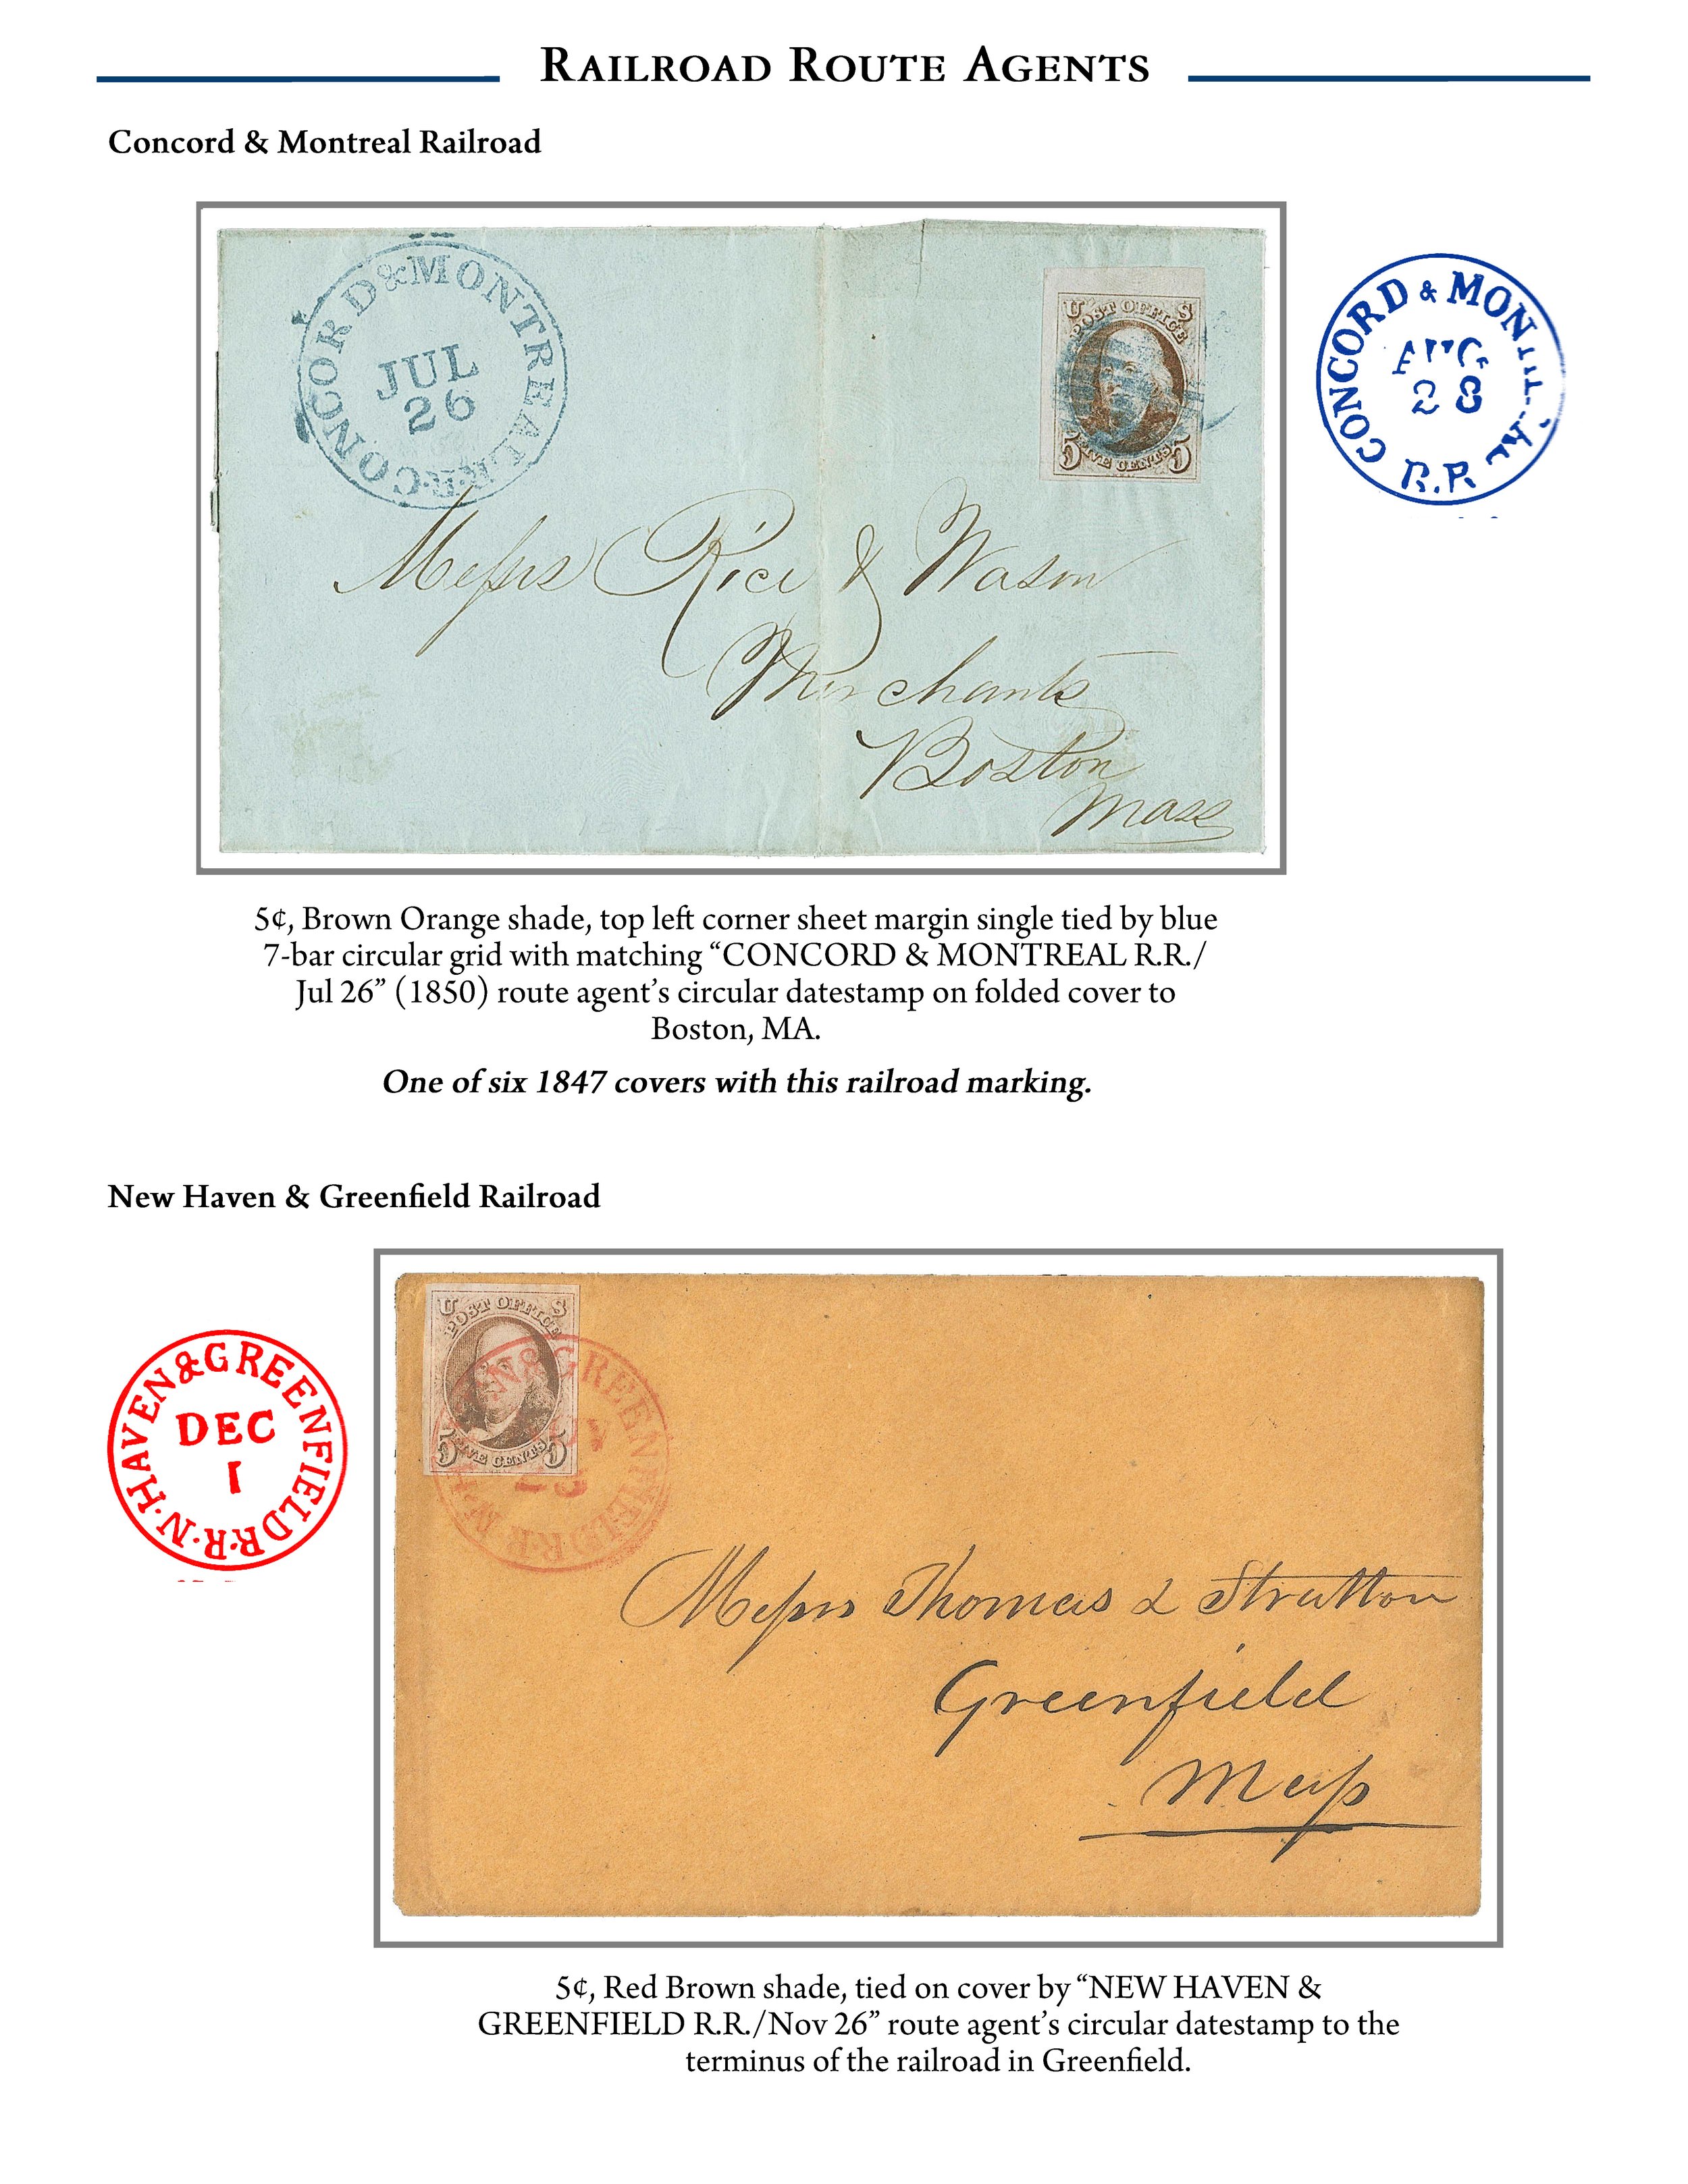 RAILROAD ROUTE AGENTS
Concord & Montreal Railroad
CONCORD & MONTREAL R.R.
JUL
26
U S
POST OFFICE
5 FIVE CENTS 5
CONCORD & MON
R.R
28
Messrs Rice & Wason
Merchants
Boston
Mass
5¢, Brown Orange shade, top left corner sheet margin single tied by blue
7-bar circular grid with matching “CONCORD & MONTREAL R.R./
Jul 26” (1850) route agent’s circular datestamp on folded cover to
Boston, MA.
One of six 1847 covers with this railroad marking.
New Haven & Greenfield Railroad
N·HAVEN & GREENFIELD R·R·
DEC
1
U S
POST OFFICE
5 FIVE CENTS 5
N & GREENFIELD R·R
Messrs Thomas & Stratton
Greenfield
Mass
5¢, Red Brown shade, tied on cover by “NEW HAVEN &
GREENFIELD R.R./Nov 26” route agent’s circular datestamp to the
terminus of the railroad in Greenfield.